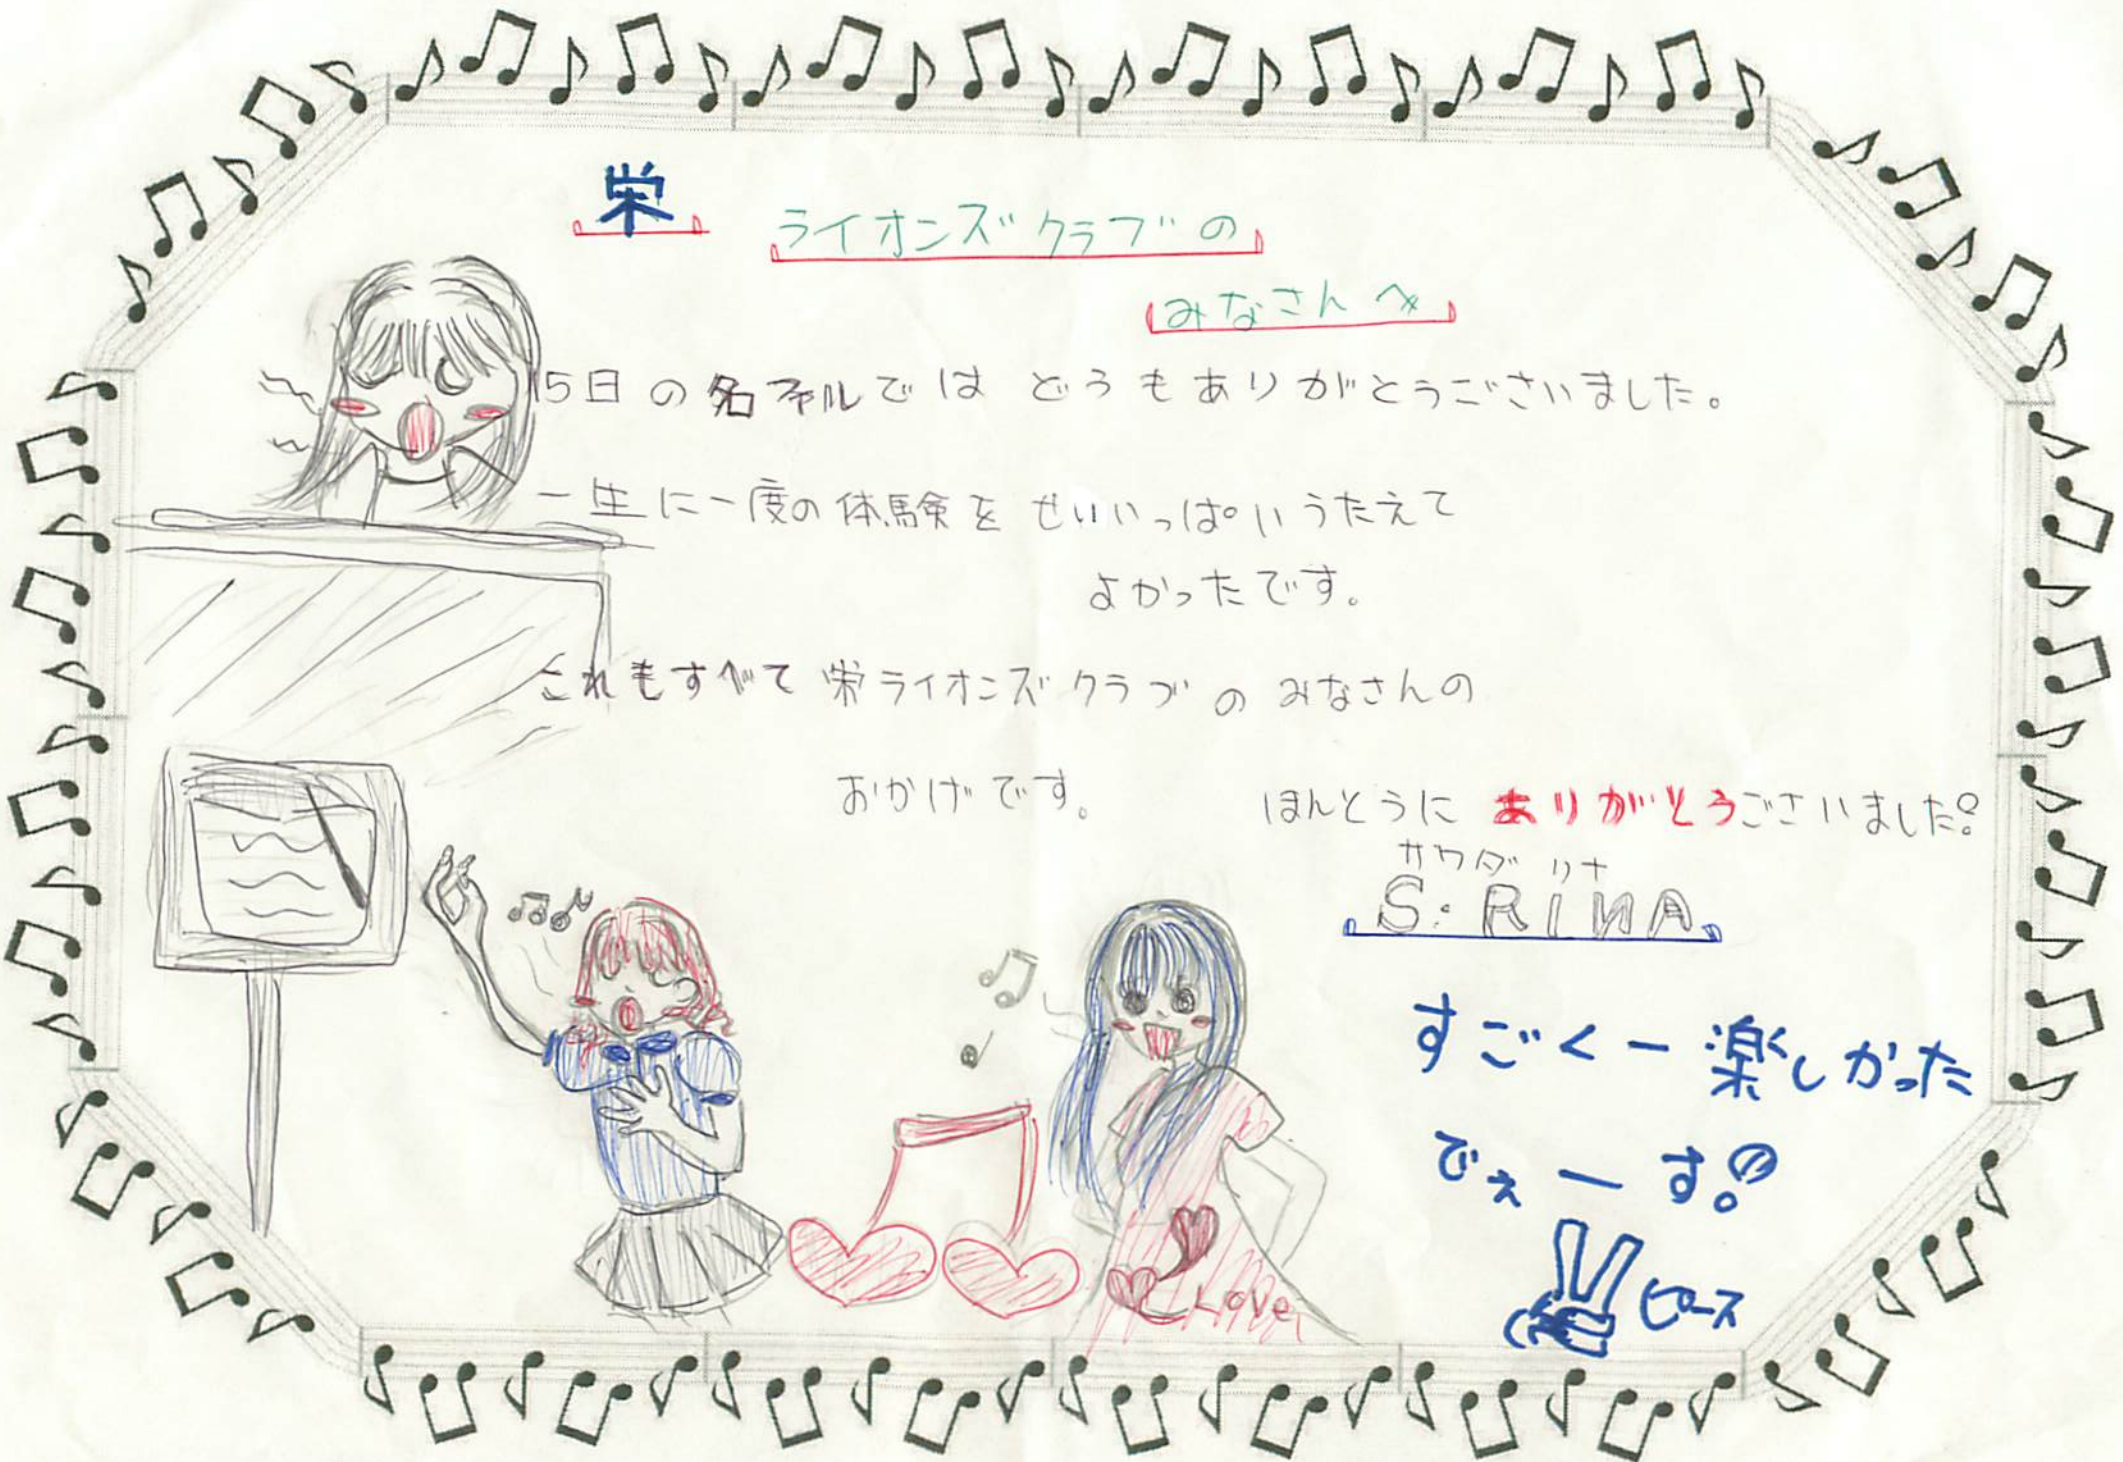 栄 ライオンズクラブの
みなさんへ
15日の名フィルでは どうもありがとうございました。
一生に一度の体験を せいいっぱいうたえて
よかったです。
これもすべて 栄ライオンズクラブの みなさんの
おかげです。 ほんとうに ありがとうございました。
サワダ リナ
S: RINA
すごくー楽しかった
でぇーす!
ピース
Love